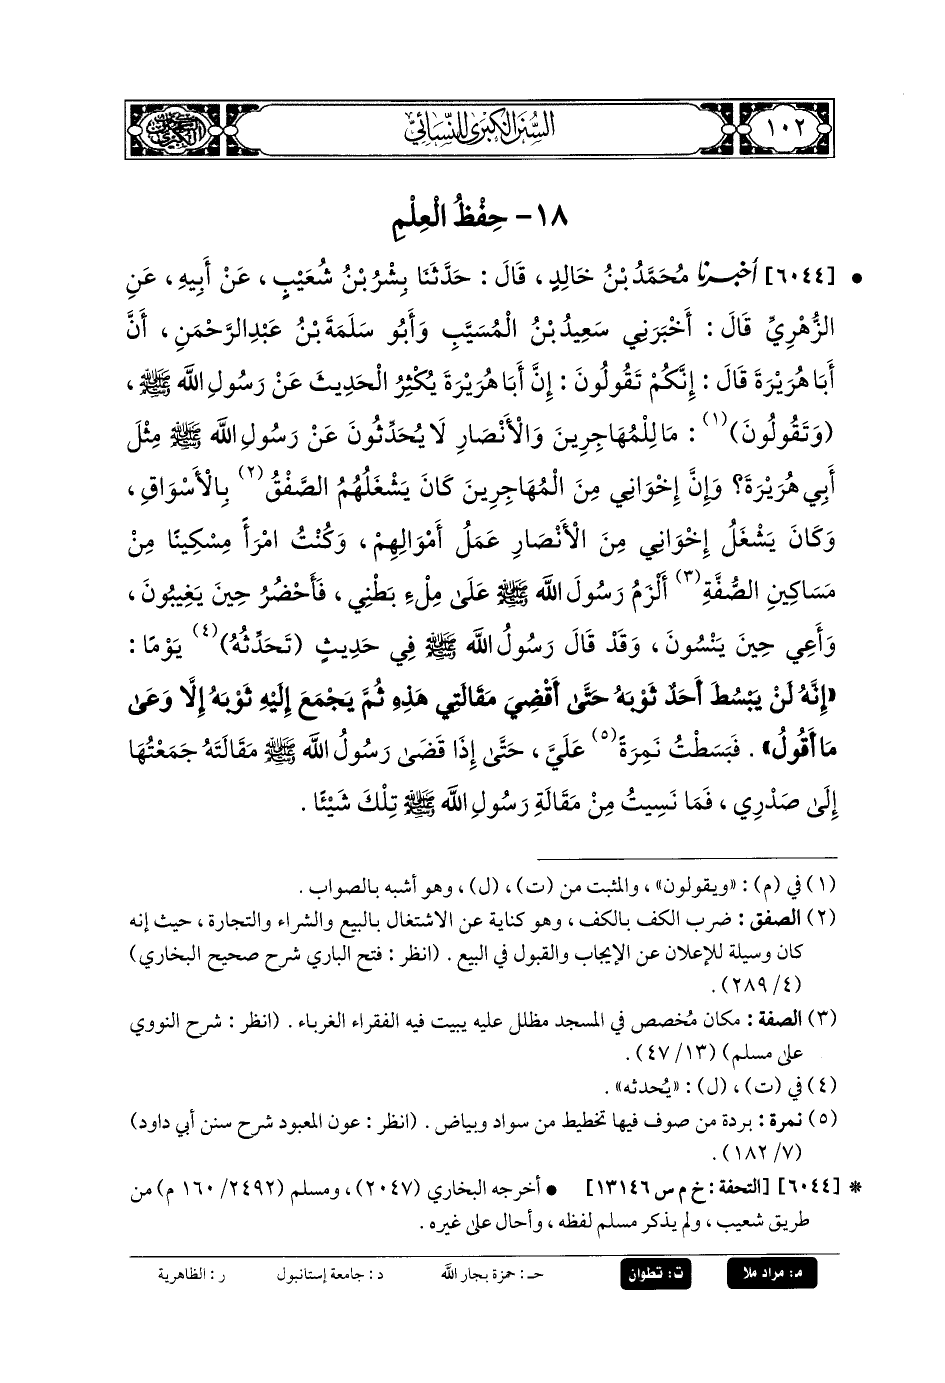 ١٠٢
السنن الكبرى للنسائي
١٨- حِفْظُ الْعِلْمِ
• [٦٠٤٤] أخبرنا مُحَمَّدُ بْنُ خَالِدٍ ، قَالَ : حَدَّثَنَا بِشْرُ بْنُ شُعَيْبٍ ، عَنْ أَبِيهِ ، عَنِ
الزُّهْرِيِّ قَالَ : أَخْبَرَنِي سَعِيدُ بْنُ الْمُسَيَّبِ وَأَبُو سَلَمَةَ بْنُ عَبْدِالرَّحْمَنِ ، أَنَّ
أَبَا هُرَيْرَةَ قَالَ : إِنَّكُمْ تَقُولُونَ : إِنَّ أَبَا هُرَيْرَةَ يُكْثِرُ الْحَدِيثَ عَنْ رَسُولِ اللَّه ﷺ ،
(وَتَقُولُونَ)(١) : مَا لِلْمُهَاجِرِينَ وَالْأَنْصَارِ لَا يُحَدِّثُونَ عَنْ رَسُولِ اللَّه ﷺ مِثْلَ
أَبِي هُرَيْرَةَ؟ وَإِنَّ إِخْوَانِي مِنَ الْمُهَاجِرِينَ كَانَ يَشْغَلُهُمُ الصَّفْقُ(٢) بِالْأَسْوَاقِ ،
وَكَانَ يَشْغَلُ إِخْوَانِي مِنَ الْأَنْصَارِ عَمَلُ أَمْوَالِهِمْ ، وَكُنْتُ امْرَأً مِسْكِينًا مِنْ
مَسَاكِينِ الصُّفَّةِ(٣) أَلْزَمُ رَسُولَ اللَّه ﷺ عَلَىٰ مِلْءِ بَطْنِي ، فَأَحْضُرُ حِينَ يَغِيبُونَ ،
وَأَعِي حِينَ يَنْسَوْنَ ، وَقَدْ قَالَ رَسُولُ اللَّه ﷺ فِي حَدِيثٍ (تَحَدِّثُهُ)(٤) يَوْمًا :
«إِنَّهُ لَنْ يَبْسُطَ أَحَدٌ ثَوْبَهُ حَتَّىٰ أَقْضِيَ مَقَالَتِي هَذِهِ ثُمَّ يَجْمَعَ إِلَيْهِ ثَوْبَهُ إِلَّا وَعَىٰ
مَا أَقُولُ» . فَبَسَطْتُ نَمِرَةً(٥) عَلَيَّ ، حَتَّىٰ إِذَا قَضَىٰ رَسُولُ اللَّه ﷺ مَقَالَتَهُ جَمَعْتُهَا
إِلَىٰ صَدْرِي ، فَمَا نَسِيتُ مِنْ مَقَالَةِ رَسُولِ اللَّه ﷺ تِلْكَ شَيْئًا .
(١) في (م) : «ويقولون» ، والمثبت من (ت) ، (ل) ، وهو أشبه بالصواب .
(٢) الصفق : ضرب الكف بالكف ، وهو كناية عن الاشتغال بالبيع والشراء والتجارة ، حيث إنه
كان وسيلة للإعلان عن الإيجاب والقبول في البيع . (انظر : فتح الباري شرح صحيح البخاري)
(٤/ ٢٨٩) .
(٣) الصفة : مكان مُخصص في المسجد مظلل عليه يبيت فيه الفقراء الغرباء . (انظر : شرح النووي
على مسلم) (١٣/ ٤٧) .
(٤) في (ت) ، (ل) : «يُحدثه» .
(٥) نمرة : بردة من صوف فيها تخطيط من سواد وبياض . (انظر : عون المعبود شرح سنن أبي داود)
(٧/ ١٨٢) .
* [٦٠٤٤] [التحفة : خ م س ١٣١٤٦] • أخرجه البخاري (٢٠٤٧) ، ومسلم (٢٤٩٢/ ١٦٠ م) من
طريق شعيب ، ولم يذكر مسلم لفظه ، وأحال على غيره .
م: مراد ملا ت: تطوان حـ : حمزة بجار اللَّه د : جامعة إستانبول ر : الظاهرية